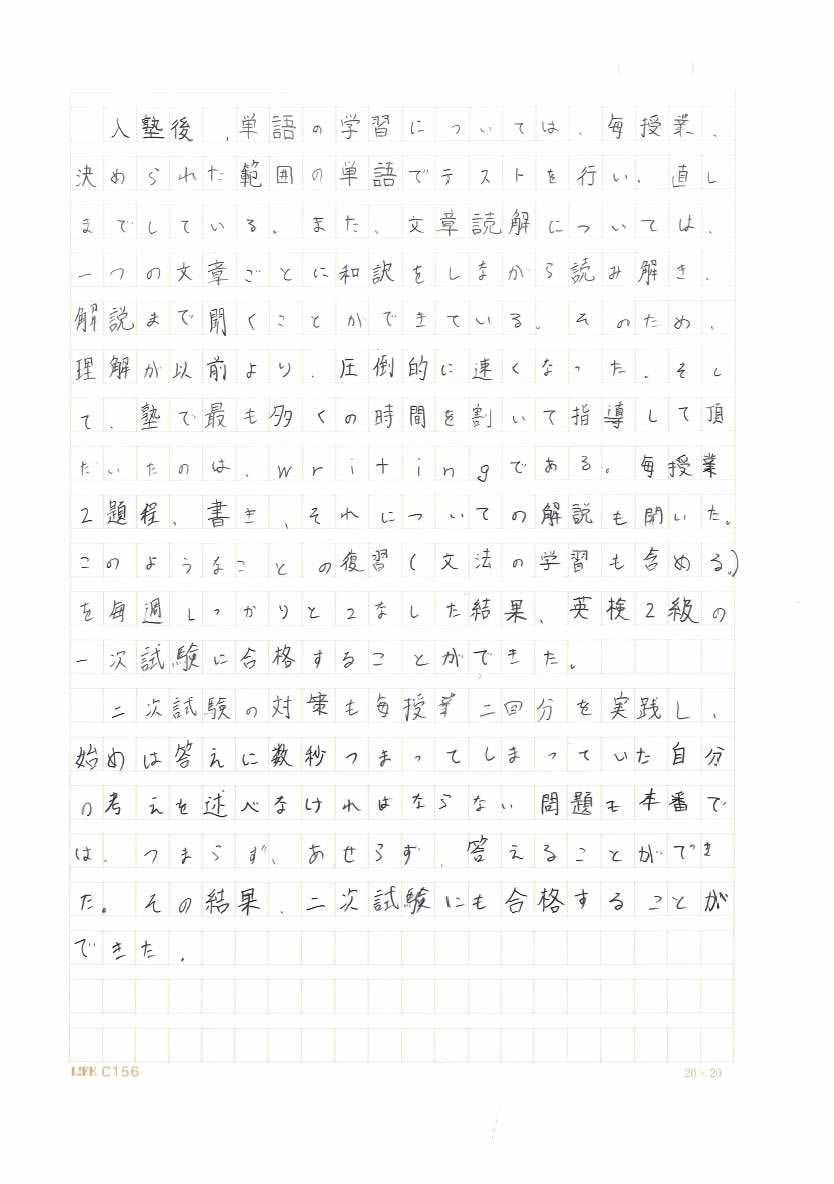 入塾後、単語の学習については、毎授業、
決められた範囲の単語でテストを行い、直し
までしている。また、文章読解については、
一つの文章ごとに和訳をしながら読み解き、
解説まで聞くことができている。そのため、
理解が以前より、圧倒的に速くなった。そし
て、塾で最も多くの時間を割いて指導して頂
だいたのは、writingである。毎授業
2題程、書き、それについての解説も聞いた。
このようなことの復習(文法の学習も含める。)
を毎週しっかりとこなした結果、英検2級の
一次試験に合格することができた。
二次試験の対策も毎授業二回分を実践し、
始めは答えに数秒つまってしまっていた自分
の考えを述べなければならない問題も本番で
は、つまらず、あせらず、答えることができ
た。その結果、二次試験にも合格することが
できた。
LIFE C156
20×20